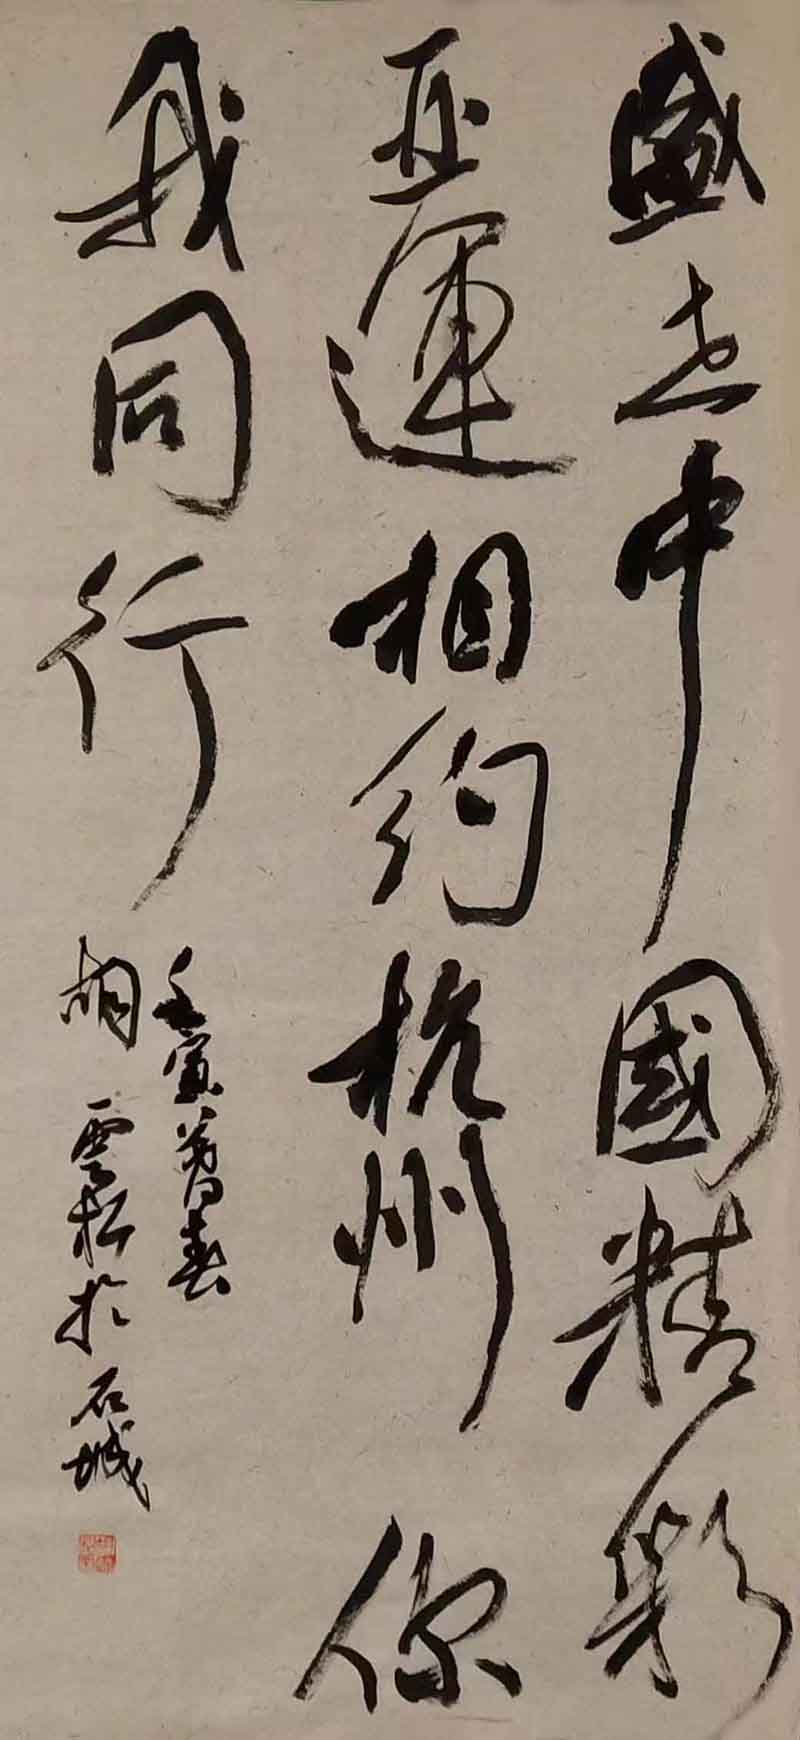 盛世中國精彩
亞運相約杭州你
我同行
壬寅暮春
胡雲松於石城